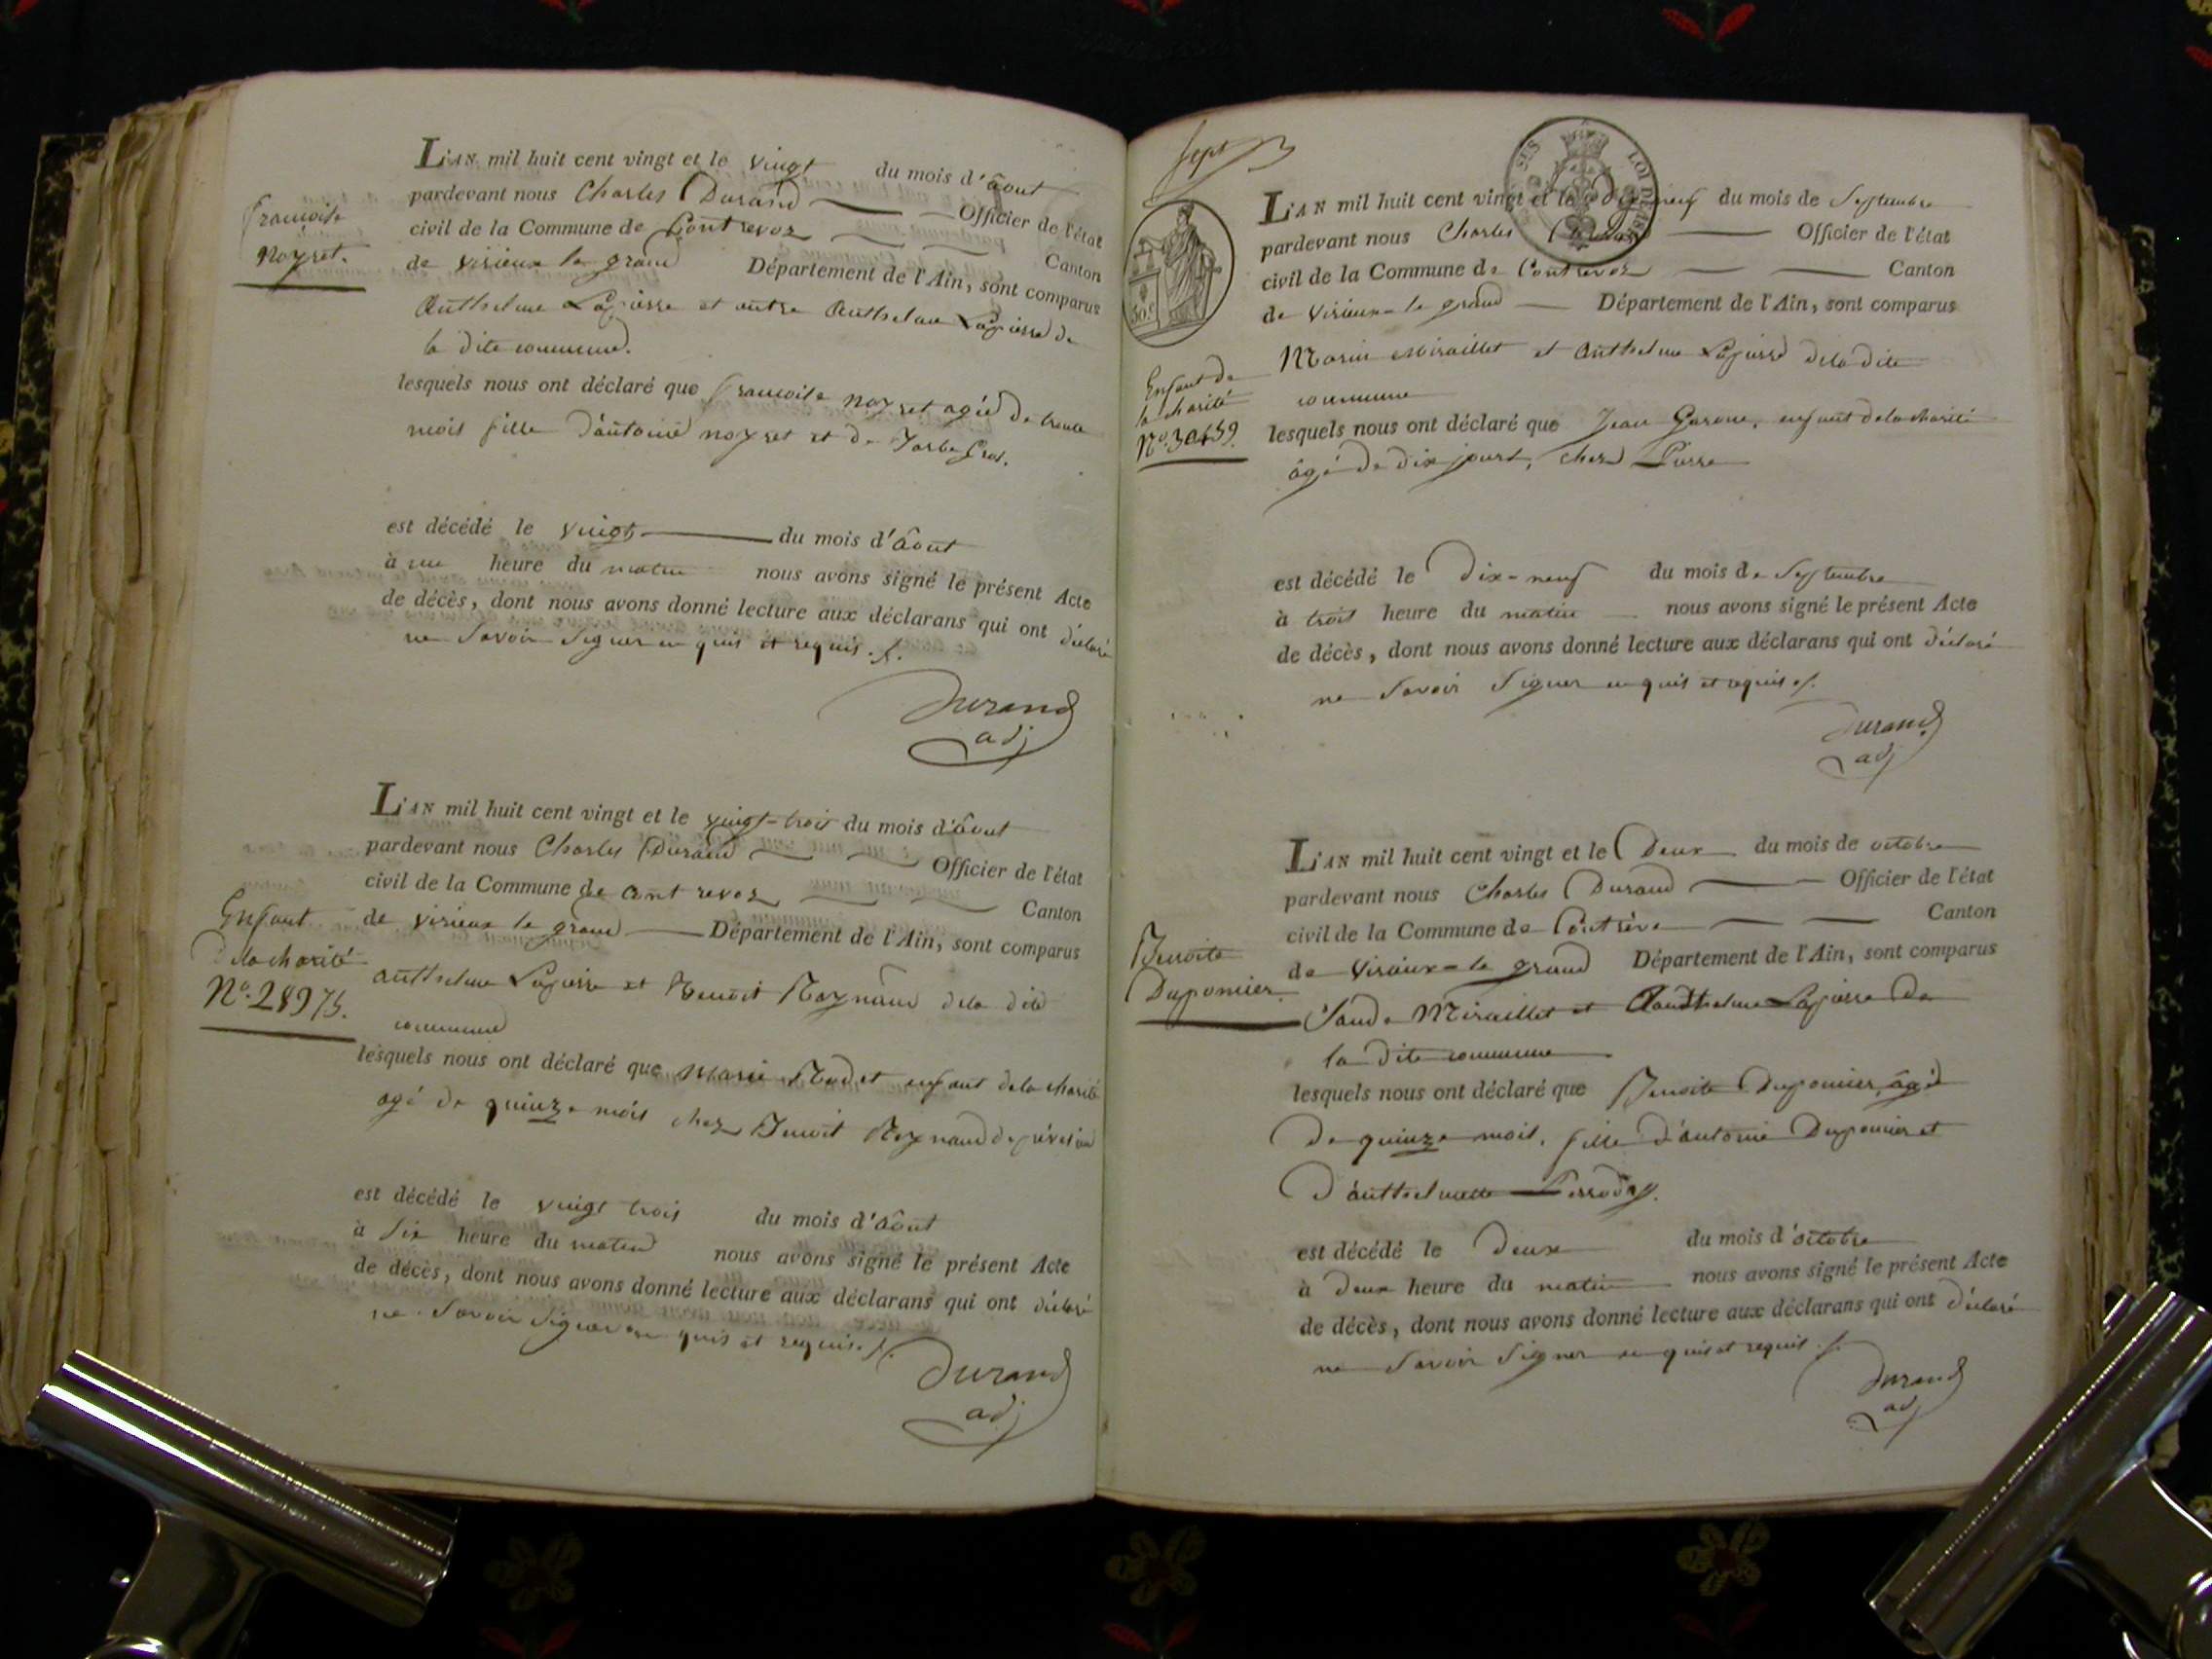 Françoise
Noyret.
L'AN mil huit cent vingt et le vingt du mois d'août
pardevant nous Charles Durand Officier de l'état
civil de la Commune de Contrevoz Canton
de virieux le grand Département de l'Ain, sont comparus
Anthelme Lapierre et autre Anthelme Lapierre de
la dite commune.
lesquels nous ont déclaré que françoise noyret agée de trente
mois fille d'antoine noyret et de
est décédé le vingt du mois d'août
à une heure du matin nous avons signé le présent Acte
de décès, dont nous avons donné lecture aux déclarans qui ont déclaré
ne Savoir Signer enquis et requis.
Durand
adj
Enfant
de la charité
N.º 28975.
L'AN mil huit cent vingt et le vingt-trois du mois d'août
pardevant nous Charles Durand Officier de l'état
civil de la Commune de Contrevoz Canton
de virieux le grand Département de l'Ain, sont comparus
anthelme Lapierre et Benoit Reynaud de la dite
commune
lesquels nous ont déclaré que Marie enfant de la charité
agé de quinze mois chez Benoit Reynaud de
est décédé le vingt trois du mois d'août
à Six heure du matin nous avons signé le présent Acte
de décès, dont nous avons donné lecture aux déclarans qui ont déclaré
ne Savoir Signer enquis et requis.
Durand
adj
Sept
LOI DE
50.c
Enfant de
la charité
N.º 30459.
L'AN mil huit cent vingt et le dix neuf du mois de Septembre
pardevant nous Charles Durand Officier de l'état
civil de la Commune de Contrevoz Canton
de Virieux-le grand Département de l'Ain, sont comparus
Marin Miraillet et Anthelme Lapierre de la dite
commune
lesquels nous ont déclaré que Jean enfant de la charité
âgé de dix jours, chez Pierre
est décédé le dix-neuf du mois de Septembre
à trois heure du matin nous avons signé le présent Acte
de décès, dont nous avons donné lecture aux déclarans qui ont déclaré
ne Savoir Signer enquis et requis.
Durand
adj
Benoite
Duponier.
L'AN mil huit cent vingt et le Deux du mois de octobre
pardevant nous Charles Durand Officier de l'état
civil de la Commune de Canton
de Virieux-le grand Département de l'Ain, sont comparus
Miraillet et Lapierre de
la dite commune
lesquels nous ont déclaré que Benoite Duponier, âgé
de quinze mois, fille d'antoine Duponier et
d'anthelmette
est décédé le deux du mois d'octobre
à deux heure du matin nous avons signé le présent Acte
de décès, dont nous avons donné lecture aux déclarans qui ont déclaré
ne Savoir Signer enquis et requis.
Durand
adj